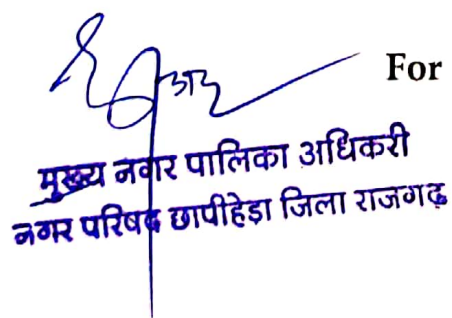 For
मुख्य नगर पालिका अधिकरी
नगर परिषद छापीहेड़ा जिला राजगढ़